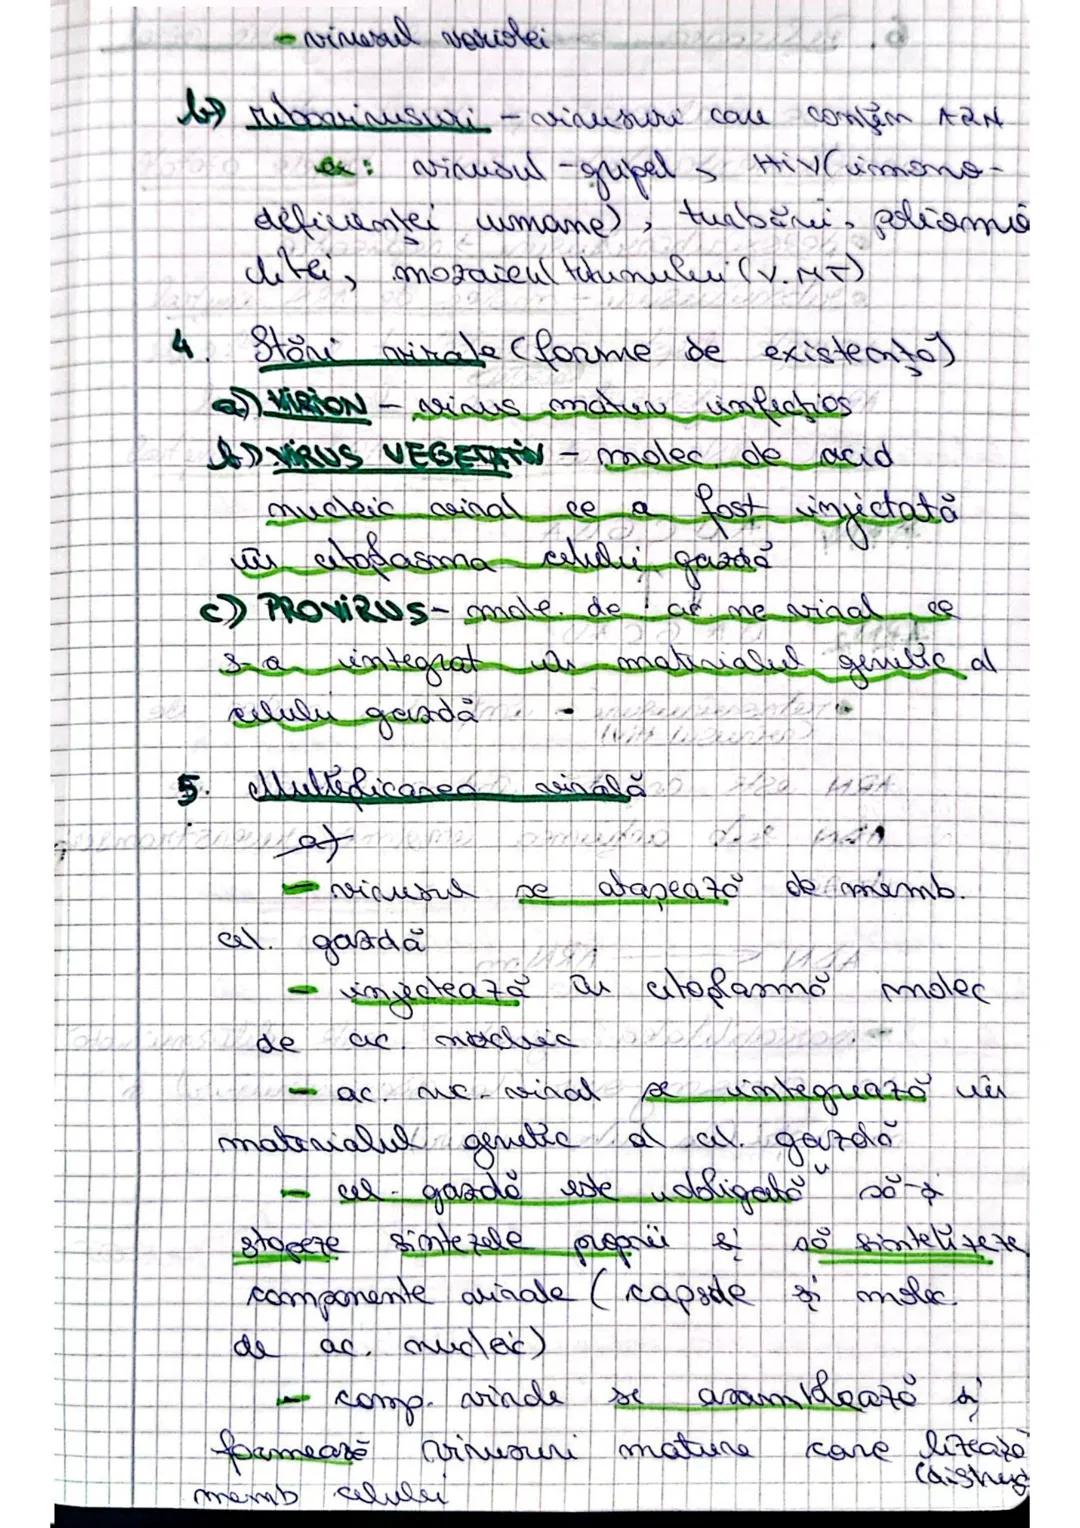 - virusul variolei
b) ribovirusuri - virusuri care conțin ARN
ex: virusul - gripal, HIV (imuno-
deficienței umane), turbării, poliomie
litei, mozaicul tutunului (V.MT)
4. Stări virale (forme de existență)
a) VIRION - virus matur infecțios
b) VIRUS VEGETATIV - molec. de acid
nucleic viral ce a fost injectată
în citoplasma celulei gazdă
c) PROVIRUS - mole. de ac. nc viral ce
s-a integrat în materialul genetic al
celulei gazdă
5. Multiplicarea virală
a)
- virusul se atașează de memb.
cel. gazdă
- injectează în citoplasmă molec
de ac. nucleic
- ac. nc. viral se integrează în
materialul genetic al cel. gazdă
- cel. gazdă este „obligată" să-și
stopeze sintezele proprii și să sintetizeze
componente virale (capside și molec.
de ac. nucleic)
- comp. virale se asamblează și
formează virusuri mature care lizează
(distrug
memb celulei